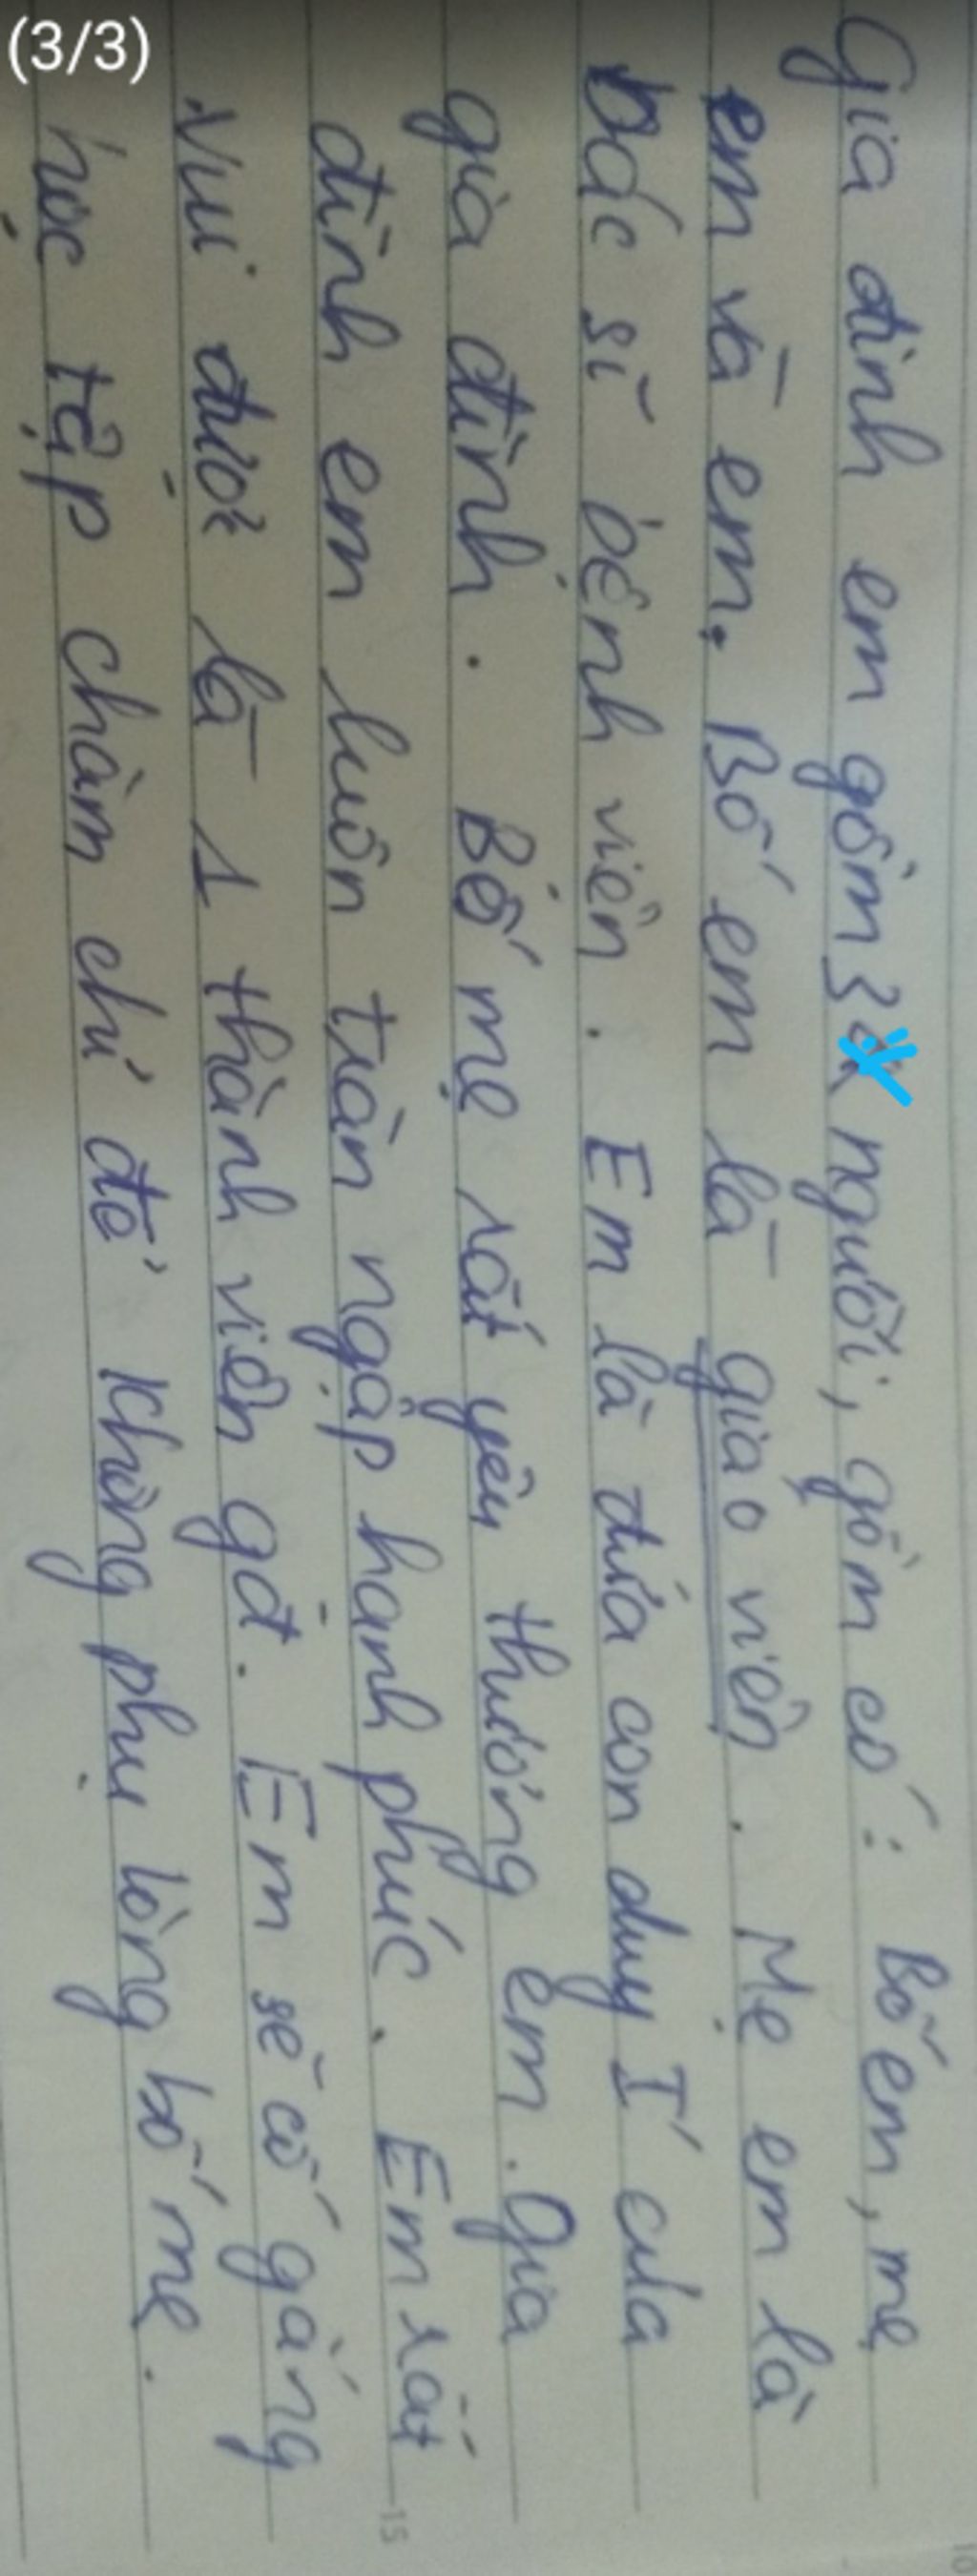 (3/3)
Gia đình em gồm 3 người, gồm có: Bố em, mẹ
em và em. Bố em là giáo viên. Mẹ em là
bác sĩ bệnh viện. Em là đứa con duy I của
gia đình. Bố mẹ rất yêu thương em. Gia
đình em luôn tràn ngập hạnh phúc. Em rất
vui được là 1 thành viên gđ. Em sẽ cố gắng
học tập chăm chỉ để không phụ lòng bố mẹ.
15
10